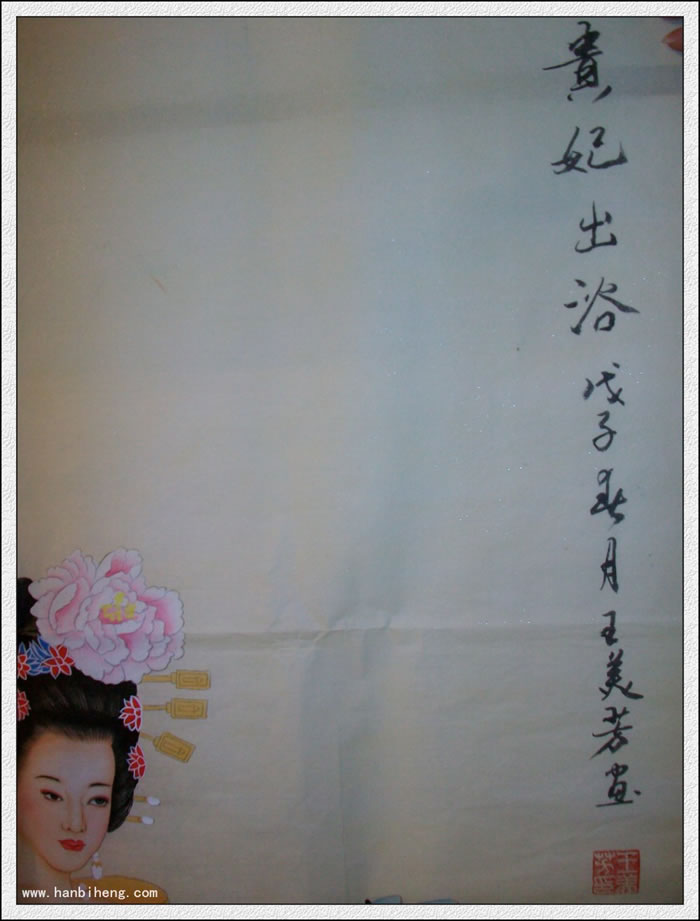 貴妃出浴 戊子春月王美芳画
王美芳印
www.hanbiheng.com